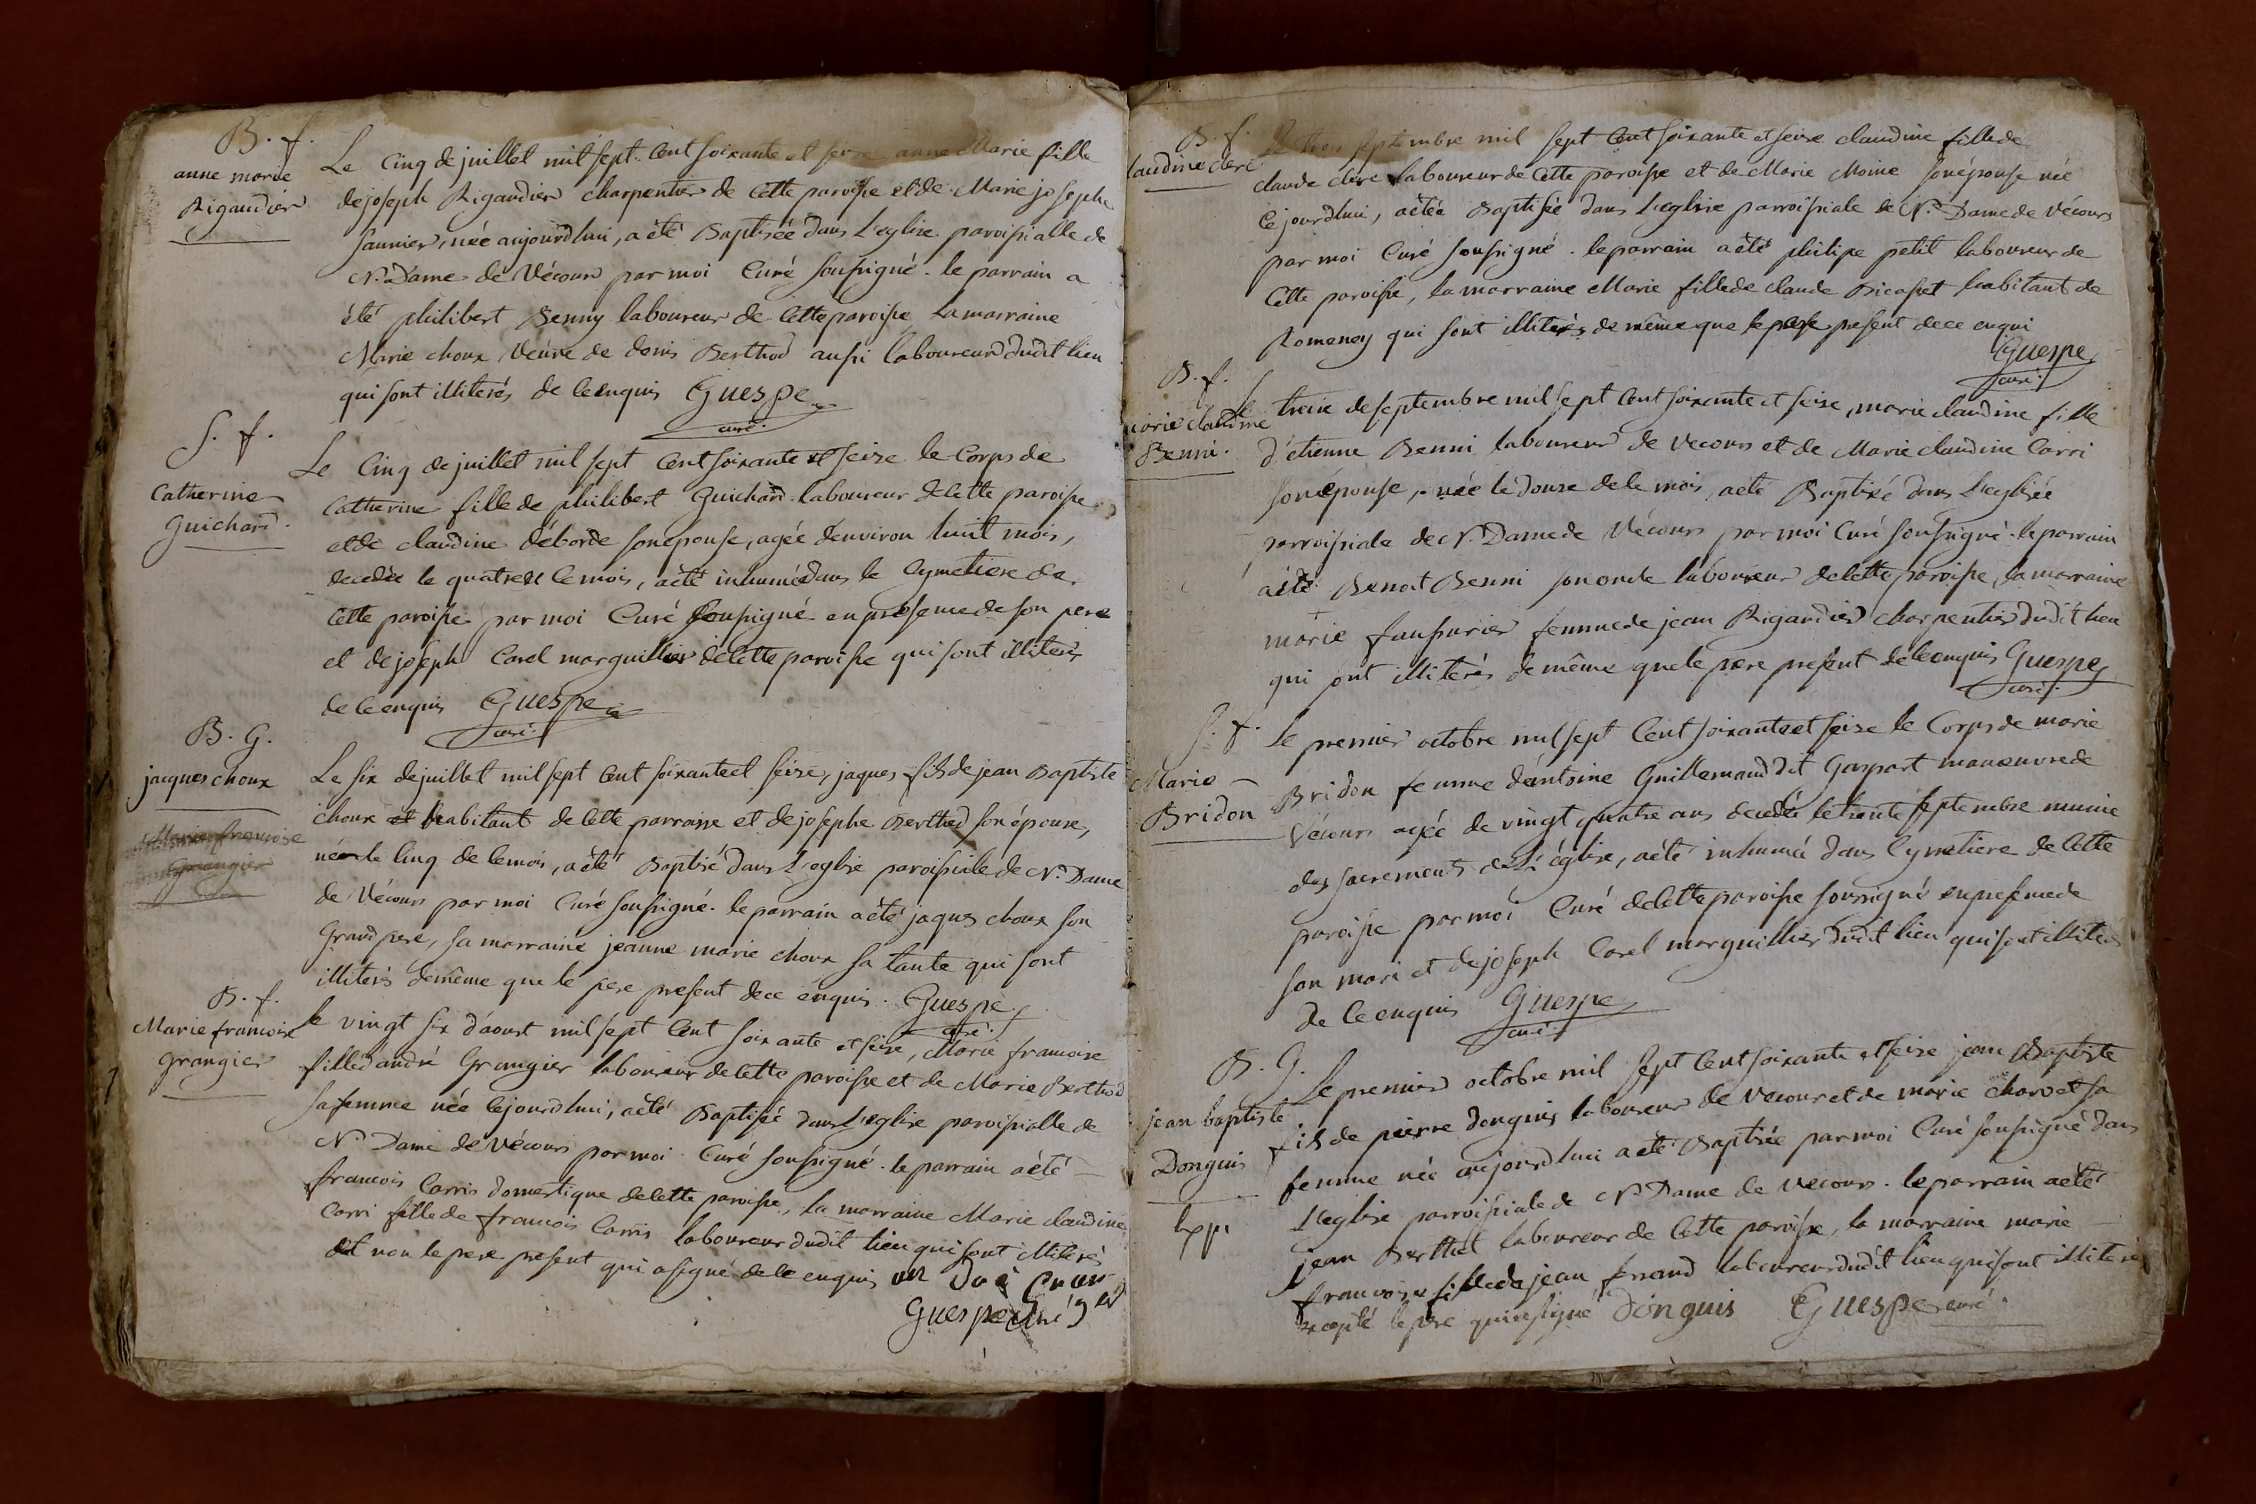 B. f.
anne marie
Rigaudier
Le Cinq de juillet mil sept Cent soixante et seize anne Marie fille
de joseph Rigaudier charpentier de cette paroisse et de Marie josephe
saunier, née aujourd'hui, a été Baptisée dans L'eglise paroissialle de
N.e Dame de Vécour par moi Curé soussigné. le parrain a
été philibert Benny laboureur de cette paroisse La marraine
Marie choux Veuve de denis Berthod aussi laboureur dudit lieu
qui sont illiterés de ce enquis Guespe
curé.
S. f.
Catherine
Guichard.
Le Cinq de juillet mil sept Cent soixante et seize le Corps de
Catherine fille de philibert Guichard laboureur de cette paroisse
et de claudine déborde son épouse, agée d'environ huit mois,
decedée le quatre de ce mois, a été inhumée dans le Cymetiere de
cette paroisse par moi Curé soussigné en presence de son pere
et de joseph Carel marguillier de cette paroisse qui sont illiterés
de ce enquis Guespe
curé.
B. G.
jacques choux
Le six de juillet mil sept Cent soixante et seize, jaques fils de jean Baptiste
choux et habitant de cette parroisse et de josephe Berthod son épouse,
né le cinq de ce mois, a été Baptisé dans L'eglise paroissiale de N.e Dame
de Vécour par moi Curé soussigné. le parrain a été jaques choux son
Grand pere, sa marraine jeanne marie choux sa tante qui sont
illiterés de même que le pere present de ce enquis. Guespe
curé.
Marie francoise
Grangier
B. f.
Marie francoise
Grangier
le vingt six d'aoust mil sept Cent soixante et seize, Marie francoise
fille d'andré Grangier laboureur de cette paroisse et de Marie Berthod
sa femme née ce jourd'hui, a été Baptisée dans L'eglise paroissialle de
N.e Dame de Vécour par moi Curé soussigné. le parrain a été
francois Carris domestique de cette paroisse, la marraine Marie claudine
Carri fille de francois Carris laboureur dudit lieu qui sont illiterés
et non le pere present qui a signé de ce enquis
Guespe Curé
B. f.
laudine clerc
trois septembre mil sept Cent soixante et seize claudine fille de
claude clerc laboureur de cette paroisse et de Marie Moine son épouse née
ce jourd'hui, a été Baptisée dans L'eglise parroissiale de N.e Dame de Vécours
par moi Curé soussigné. le parrain a été philipe petit laboureur de
cette paroisse, la marraine Marie fille de claude Bicaset habitant de
Romenay qui sont illiterés de même que le pere present de ce enqui
Guespe
curé.
B. f.
marie claudine
Benni.
Le treize de septembre mil sept Cent soixante et seize, marie claudine fille
d'etienne Benni laboureur de Vecours et de Marie claudine Carri
son épouse, née le douze de ce mois, a été Baptisé dans L'eglisée
parroissiale de N.e Dame de Vécours par moi Curé soussigné. le parrain
a été Benoit Benni son oncle laboureur de cette paroisse, la marraine
marie saussurier femme de jean Rigaudier charpentier dudit lieu
qui sont illiterés de même que le pere present de ce enquis Guespe
curé.
S. f.
Marie
Bridon
Le premier octobre mil sept Cent soixante et seize le Corps de marie
Bridon femme d'antoine Guillemaud dit Gaspart manoeuvre de
Vécours agée de vingt quatre ans decedée le trente septembre munie
des sacrements de L'église, a été inhumée dans Cymetiere de cette
paroisse par moi Curé de cette paroisse soussigné en presence de
son mari et de joseph Carel marguillier dudit lieu qui sont illiterés
de ce enquis Guespe
curé
B. G.
jean baptiste
Donguis
Le premier octobre mil sept Cent soixante et seize jean Baptiste
fils de pierre donguis laboureur de Vecour et de marie charvet sa
femme née aujourd'hui a été Baptisée par moi Curé soussigné dans
L'eglise parroissiale de N.e Dame de Vecours. le parrain a été
jean Berthet laboureur de cette paroisse, la marraine marie
francoise fille de jean ferrand laboureur dudit lieu qui sont illiterés
excepté le pere qui a signé Donguis Guespe curé.